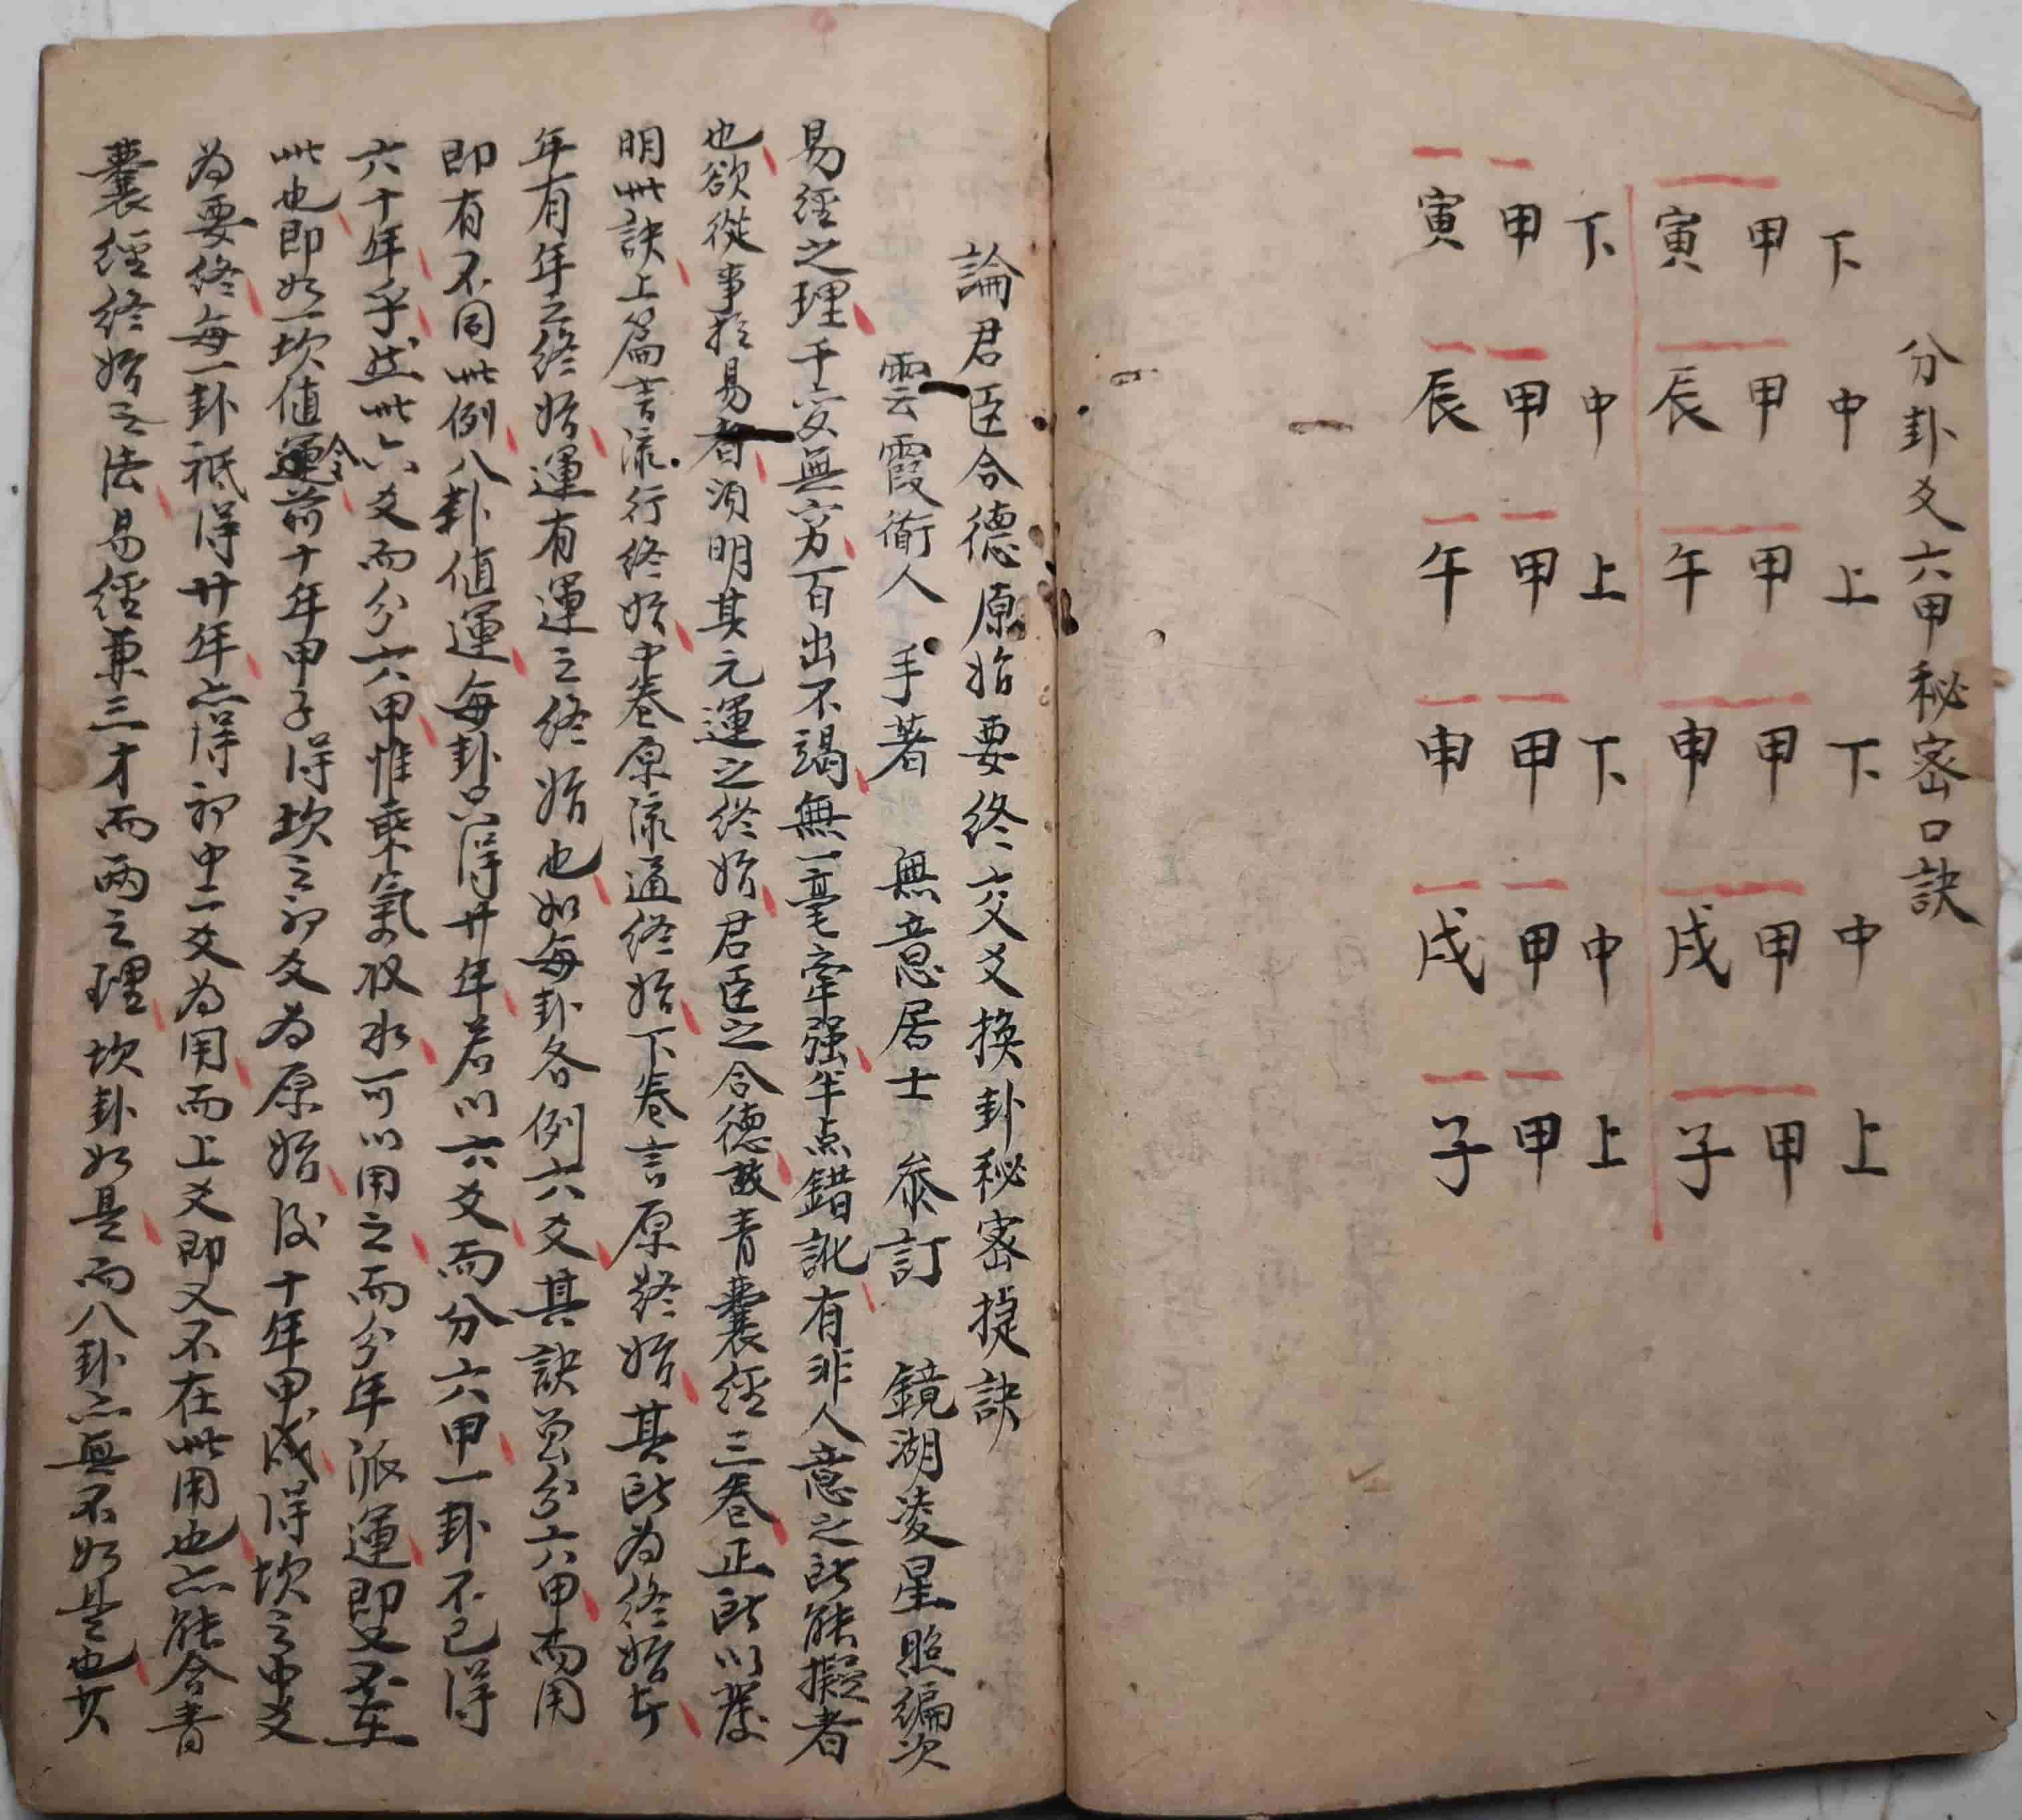 分卦爻六甲秘密口訣
下 中 上 下 中 上
甲 甲 甲 甲 甲 甲
寅 辰 午 申 戌 子
下 中 上 下 中 上
甲 甲 甲 甲 甲 甲
寅 辰 午 申 戌 子
論君臣合德原始要終交爻換卦秘密捷訣
雲霞衜人手著 無意居士叅訂 鏡湖凌星照編次
易經之理千变無穷百出不竭無一毫牽强半点錯訛有非人意之所能擬者
也欲從事於易者須明其元運之終始君臣之合德故青囊經三卷正所以發
明此訣上篇言流行終始中卷原流通終始下卷言原終始其所为終始者
年有年之終始運有運之終始也如每卦各例六爻其訣曾分六甲而用
即有不同此例八卦值運每卦只得廿年若以六爻而分六甲一卦不已得
六十年乎然此六爻而分六甲惟乘氣收水可以用之而分年派運即又不在
此也即如一坎值運令前十年甲子得坎之初爻为原始後十年甲戌得坎之中爻
为要終每一卦祗得廿年亦得初中二爻为用而上爻即又不在此用也亦能合青
囊經終始之法易經兼三才而两之理坎卦如是而八卦亦無不如是也其